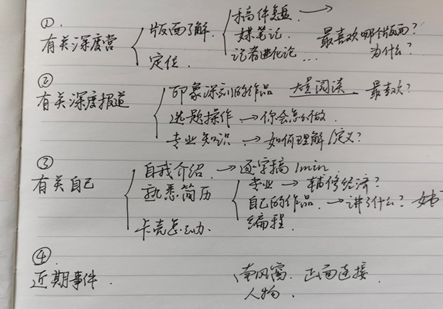 ①
有关深度营 版面了解 稿件复盘 →
采笔记 最喜欢哪个版面?
定位. 记者进化论... 为什么?
②
有关深度报道 印象深刻的作品 大量阅读 → 最喜欢?
选题操作 → 你会怎么做.
专业知识. → 如何理解/定义?
③
有关自己 自我介绍. → 逐字稿 1min
熟悉简历 专业 → 辅修经济?
自己的作品. → 讲了什么?
卡壳怎么办. 编程.
④
近期事件. 南风窗. 正面连接.
人物.